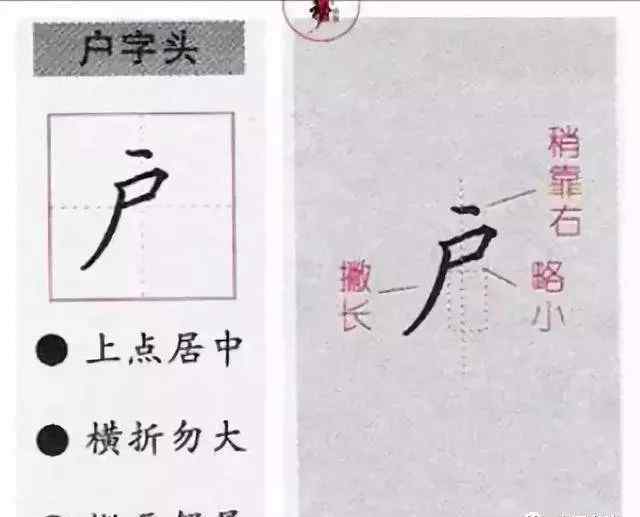 户字头
户
上点居中
横折勿大
户
稍靠右
撇长
略小